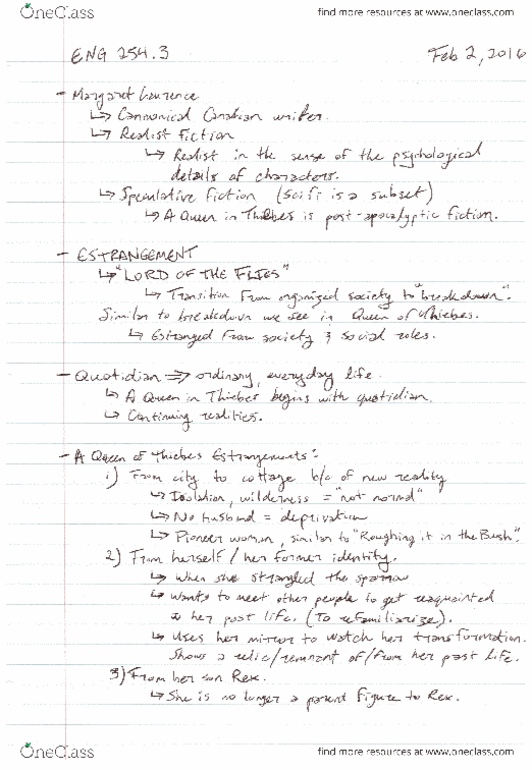 OneClass
find more resources at www.oneclass.com
ENG 254.3 Feb 2, 2016
- Margaret Laurence
↳ Cannonical Canadian writer.
↳ Realist Fiction
↳ Realist in the sense of the psychological
details of characters.
↳ Speculative Fiction (Scifi is a subset)
↳ A Queen in Thiebes is post-apocalyptic fiction.
- ESTRANGEMENT
↳ "LORD OF THE FLIES"
↳ Transition from organized society to "breakdown".
Similar to breakdown we see in Queen of Thiebes.
↳ Estranged from society & social roles.
- Quotidian ⇒ ordinary, everyday life.
↳ A Queen in Thiebes begins with quotidian.
↳ Continuing realities.
- A Queen of Thiebes Estrangements:
1) From city to cottage b/c of new reality
↳ Isolation, wilderness = "not normal"
↳ No husband = deprivation
↳ Pioneer woman, similar to "Roughing it in the Bush".
2) From herself / her former identity.
↳ When she strangled the sparrow
↳ Wants to meet other people to get reaquainted
w her past life. (To refamiliarize).
↳ Uses her mirror to watch her transformation.
Shows a relic/remnant of/from her past life.
3) From her son Rex.
↳ She is no longer a parent figure to Rex.
OneClass
find more resources at www.oneclass.com